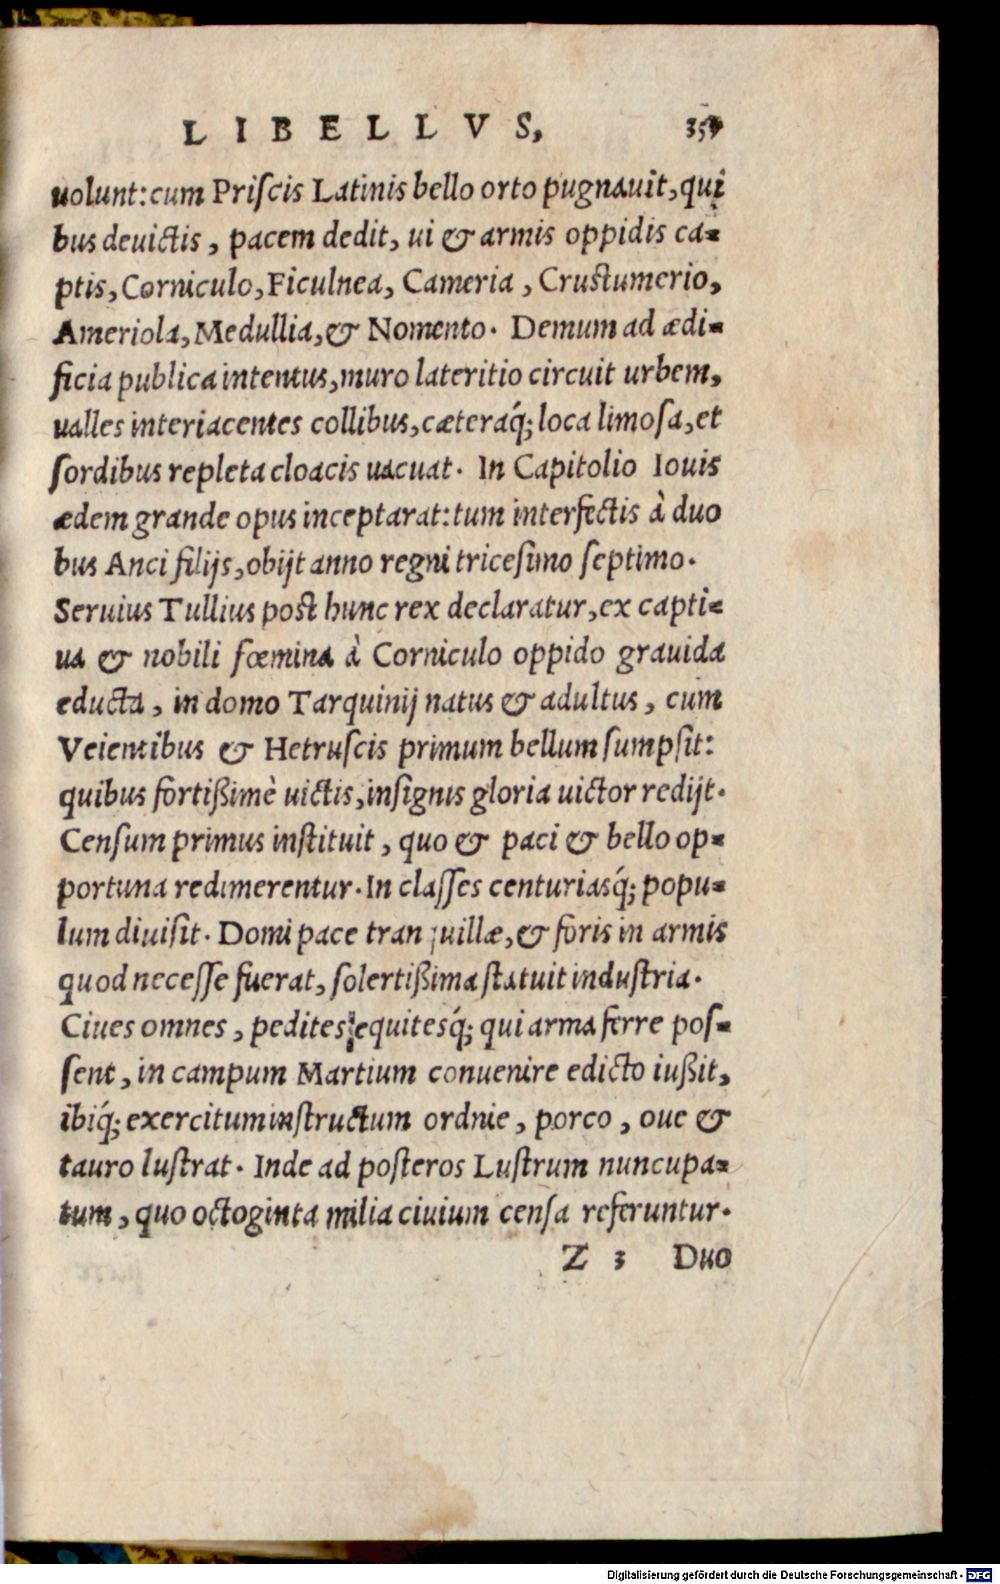 LIBELLVS,
uolunt: cum Priſcis Latinis bello orto pugnauit, qui
bus deuictis, pacem dedit, ui & armis oppidis ca-
ptis, Corniculo, Ficulnea, Cameria, Cruſtumerio,
Ameriola, Medullia, & Nomento. Demum ad ædi-
ficia publica intentus, muro lateritio circuit urbem,
ualles interiacentes collibus, cæteraq́; loca limoſa, et
ſordibus repleta cloacis uacuat. In Capitolio Iouis
ædem grande opus inceptarat: tum interfectis à duo
bus Anci filijs, obijt anno regni triceſimo ſeptimo.
Seruius Tullius poſt hunc rex declaratur, ex capti-
ua & nobili fœmina à Corniculo oppido grauida
educta, in domo Tarquinij natus & adultus, cum
Veientibus & Hetruſcis primum bellum ſumpſit:
quibus fortißimè uictis, inſignis gloria uictor redijt.
Cenſum primus inſtituit, quo & paci & bello op-
portuna redimerentur. In claſſes centuriasq́; popu-
lum diuiſit. Domi pace tranquillæ, & foris in armis
quod neceſſe fuerat, ſolertißima ſtatuit induſtria.
Ciues omnes, pedites, equitesq́; qui arma ferre poſ-
ſent, in campum Martium conuenire edicto iußit,
ibiq́; exercitum inſtructum ordnie, porco, oue &
tauro luſtrat. Inde ad poſteros Luſtrum nuncupa-
tum, quo octoginta milia ciuium cenſa referuntur.
Z 3 Duo
Digitalisierung gefördert durch die Deutsche Forschungsgemeinschaft - DFG